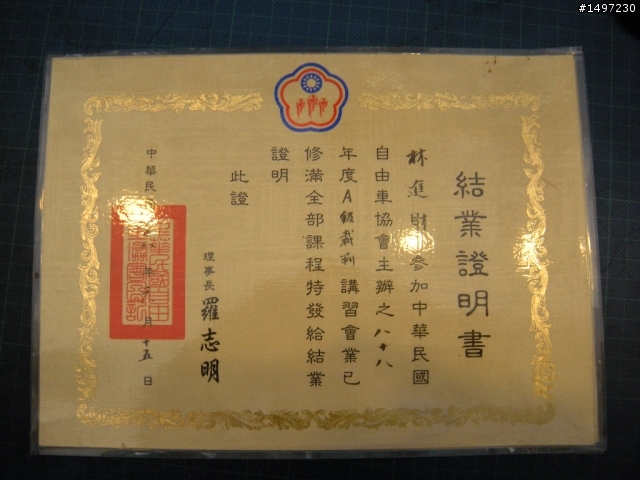 #1497230
結業證明書
林進財君參加中華民國
自由車協會主辦之八十八
年度A級裁判講習會業已
修滿全部課程特發給結業
證明
此證
理事長 羅志明
中華民 年 月十五日